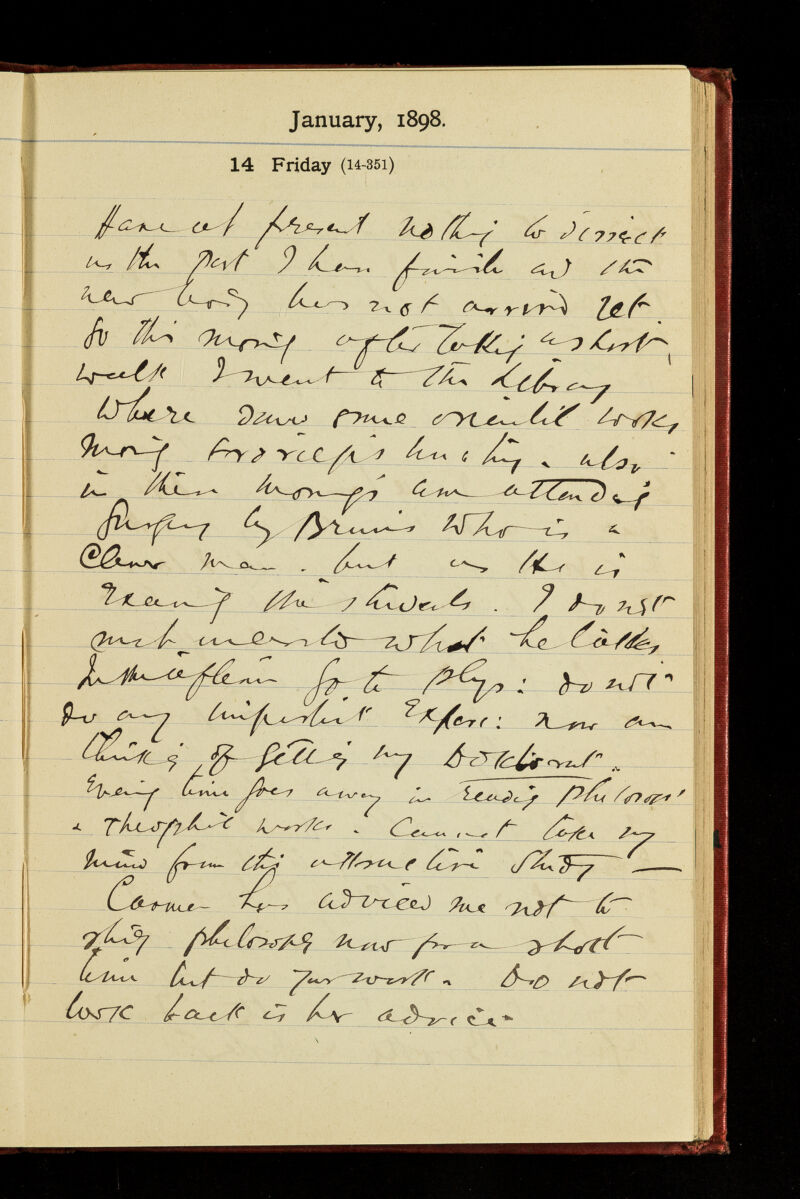 January, 1898.
14 Friday (14-351)
Have at present nothing to dissect
as the part I have finish and the
new body has not arrived yet.
So this morning after taking a short
walk I went to the Library
where saw some orientil works
mong
in these mornings am attending
Surgery by Bruns who is a
Clever man. but as He is
Examing the students. I do not
much what he talks
In the afternn go to Phys: do not
do any importint Exper: now am
thinking of getting my Doktorat.
Evening time goes away in reading Philosoph
& Theosophic works. Cannot take my
mind from this attractive study —
has adviced me not to
study philosophy now for a short
time but do your work. Do not
look back is her advice.